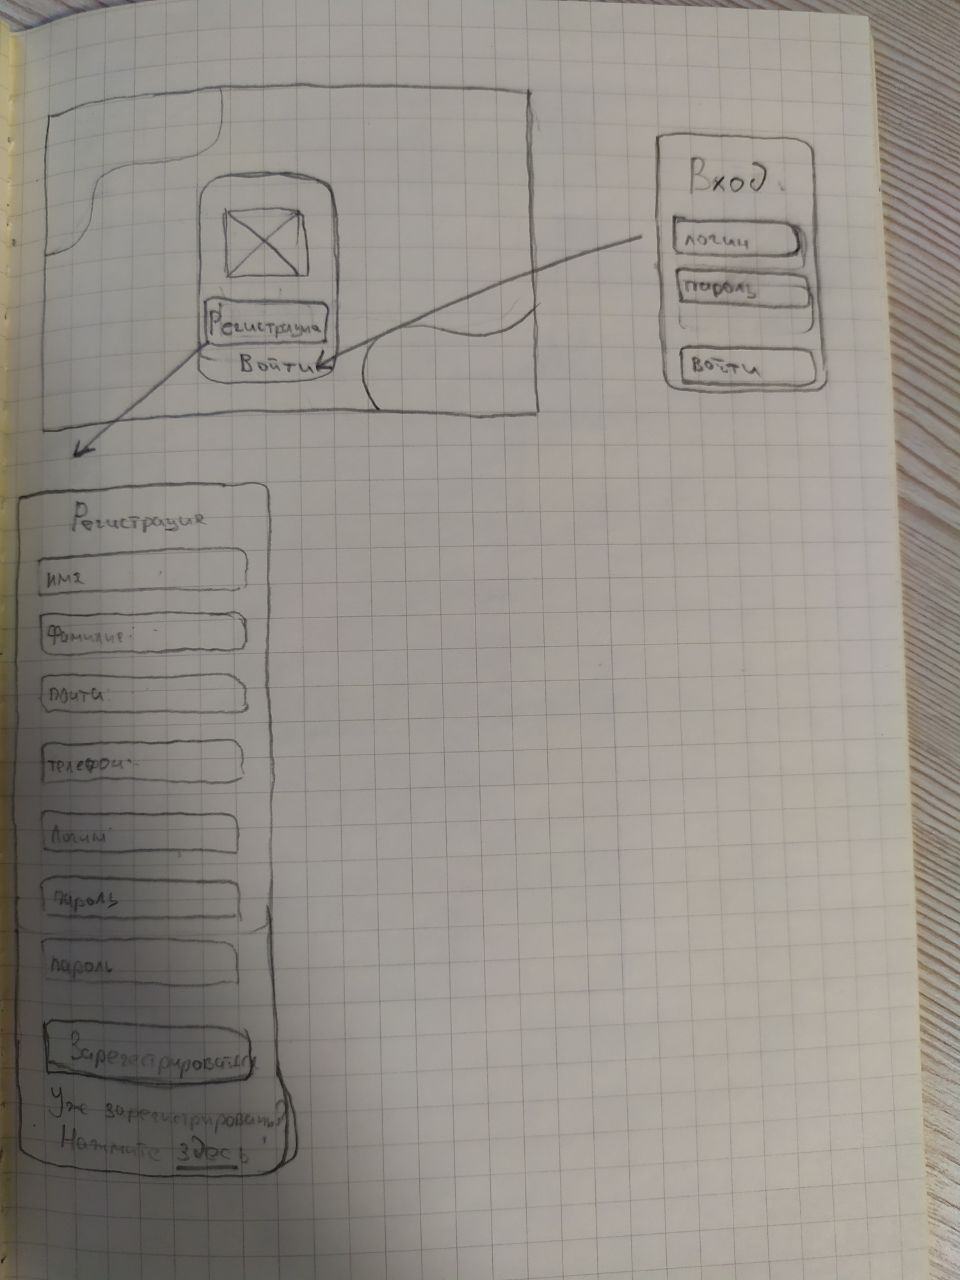 Регистрация
Войти
Вход
логин
пароль
Войти
Регистрация
имя
Фамилие
почта
телефон
Логин
пароль
пароль
Зарегестрироваться
Уже зарегистрированы?
Нажмите здесь